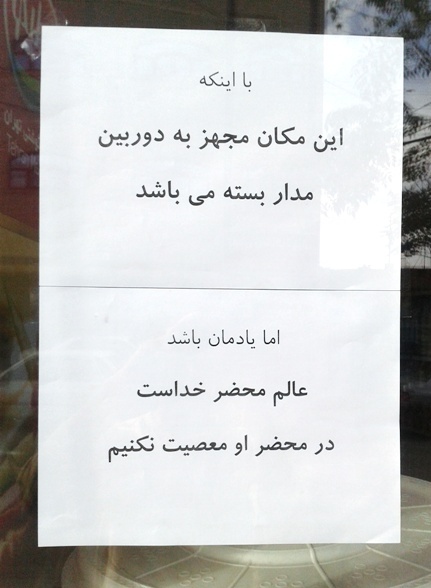 با اینکه
این مکان مجهز به دوربین
مدار بسته می باشد
اما یادمان باشد
عالم محضر خداست
در محضر او معصیت نکنیم